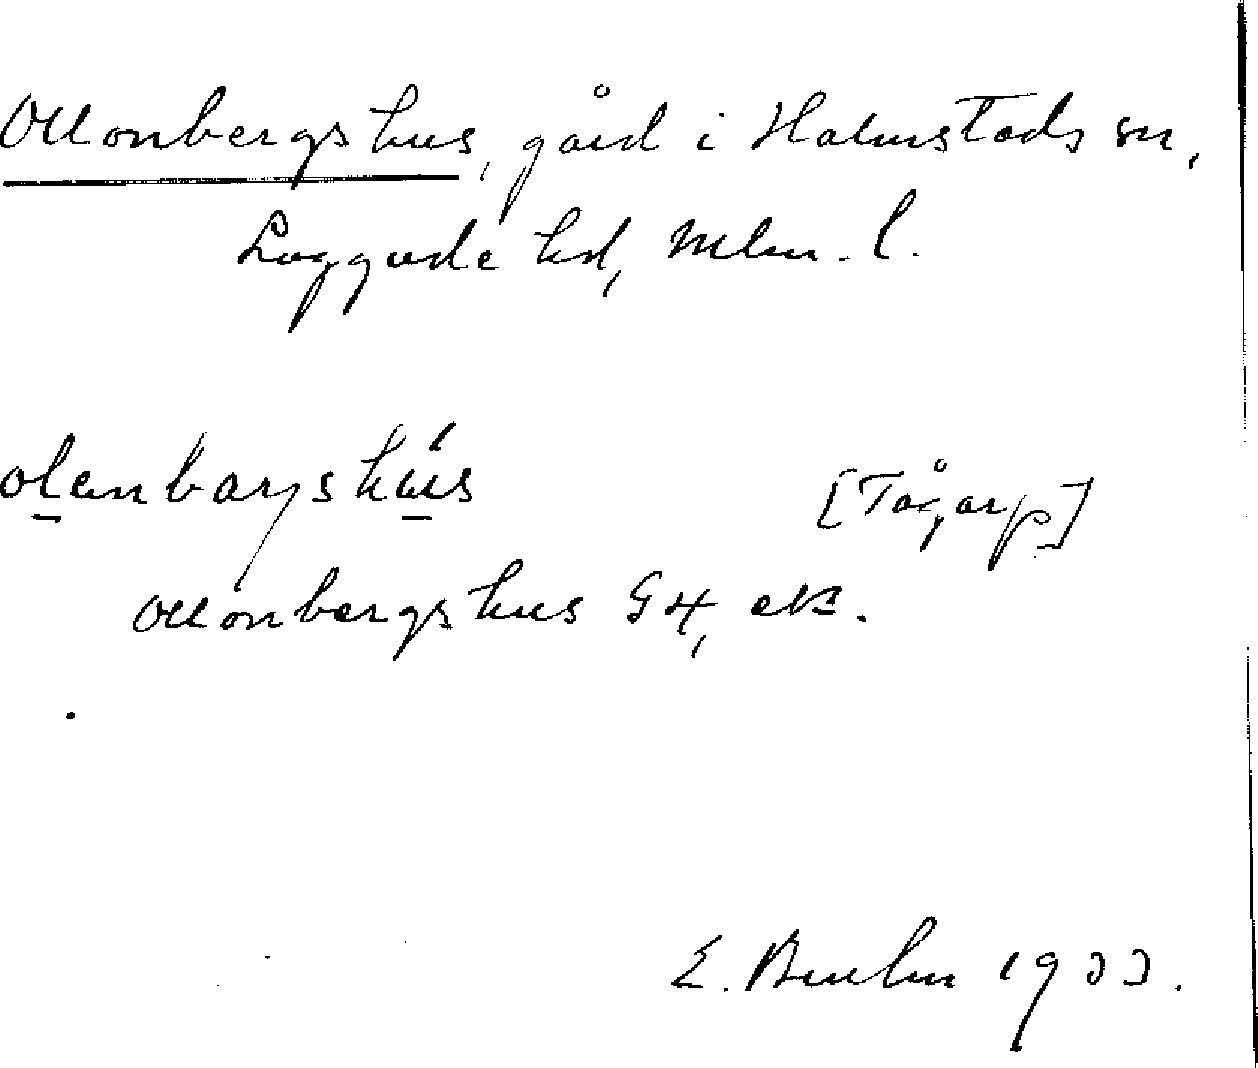 Ollonbergshus, gård i Halmstads sn,
Luggude hd, Mlm. l.
olanbarjshús [Tågarp]
Ollonbergshus G4, ek.
E. Bruhn 1933.